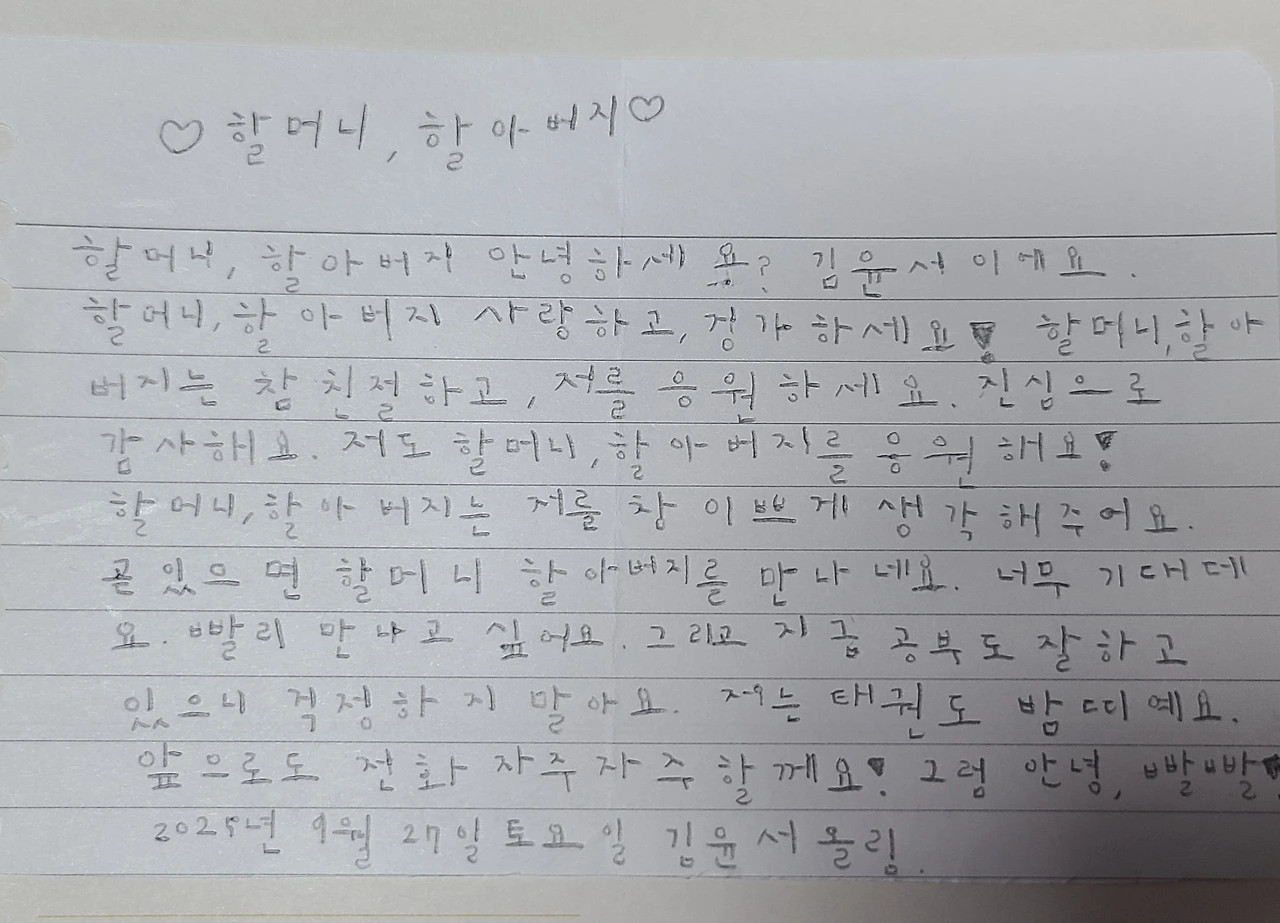 ♡할머니, 할아버지♡
할머니, 할아버지 안녕하세용? 김윤서이에요.
할머니, 할아버지 사랑하고, 정가하세요! 할머니, 할아
버지는 참 친절하고, 저를 응원하세요. 진심으로
감사해요. 저도 할머니, 할아버지를 응원해요!
할머니, 할아버지는 저를 참 이쁘게 생각해주어요.
곧 있으면 할머니 할아버지를 만나네요. 너무 기대데
요. 빨리 만나고 싶어요. 그리고 지금 공부도 잘하고
있으니 걱정하지 말아요. 저는 태권도 밤띠예요.
앞으로도 전화 자주자주 할께요! 그럼 안녕, 빨빨!
2025년 9월 27일 토요일 김윤서 올림.